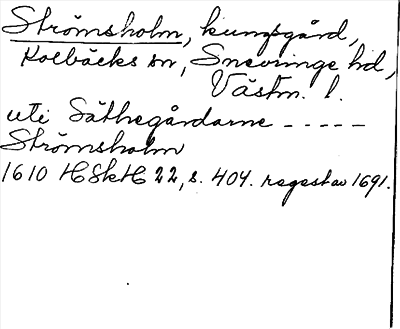 Strömsholm, kungsgård,
Kolbäcks sn, Snevringe hd,
Västm. l.
uti Säthegårdarne -----
Strömsholm
1610 HSkH 22, s. 404. regest av 1691.